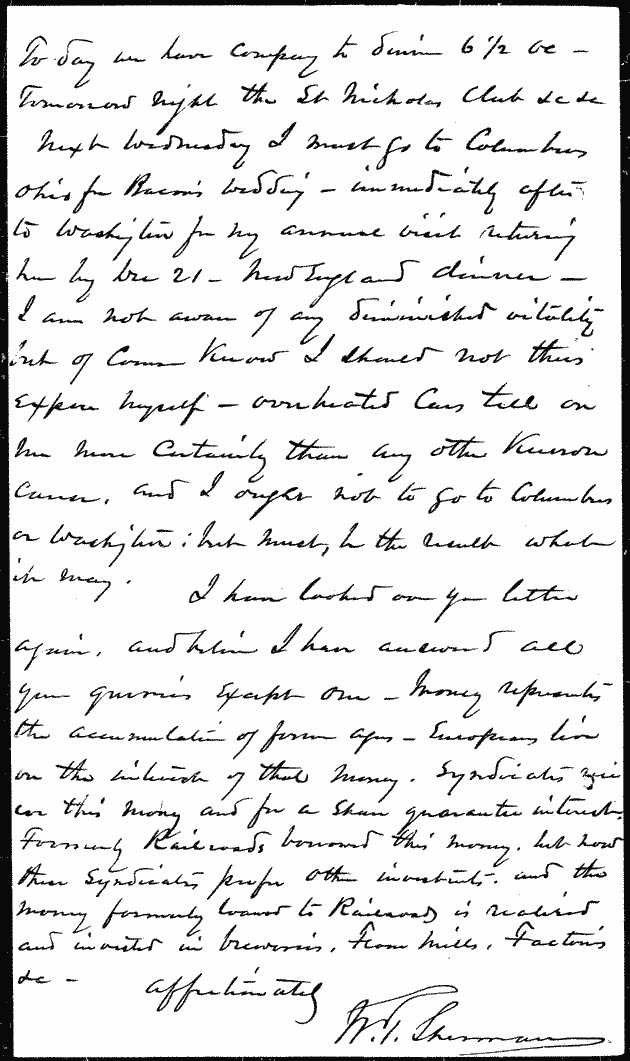 To day we have company to dinner 6 1/2 oc -
Tomorrow night the St Nicholas Club &c &c
Next Wednesday I must go to Columbus
Ohio for Bacon's wedding - immediately after
to Washington for my annual visit returning
here by Dec 21 - New England dinner -
I am not aware of any diminished vitality
but of course know I should not thus
expose myself - overheated Cars tell on
me more certainly than any other known
cause, and I ought not to go to Columbus
or Washington: but must, be the result what
it may. I have looked over your letter
again, and believe I have answered all
your queries except one - Money represents
the accumulation of former ages - Europeans live
on the interest of that money. Syndicates
this money and for a share guarantee interest.
Formerly Railroads borrowed this money, but now
these Syndicates prefer other investments, and the
money formerly loaned to Railroads is realized
and invested in breweries, Flour Mills, Factories
&c - affectionately
W. T. Sherman